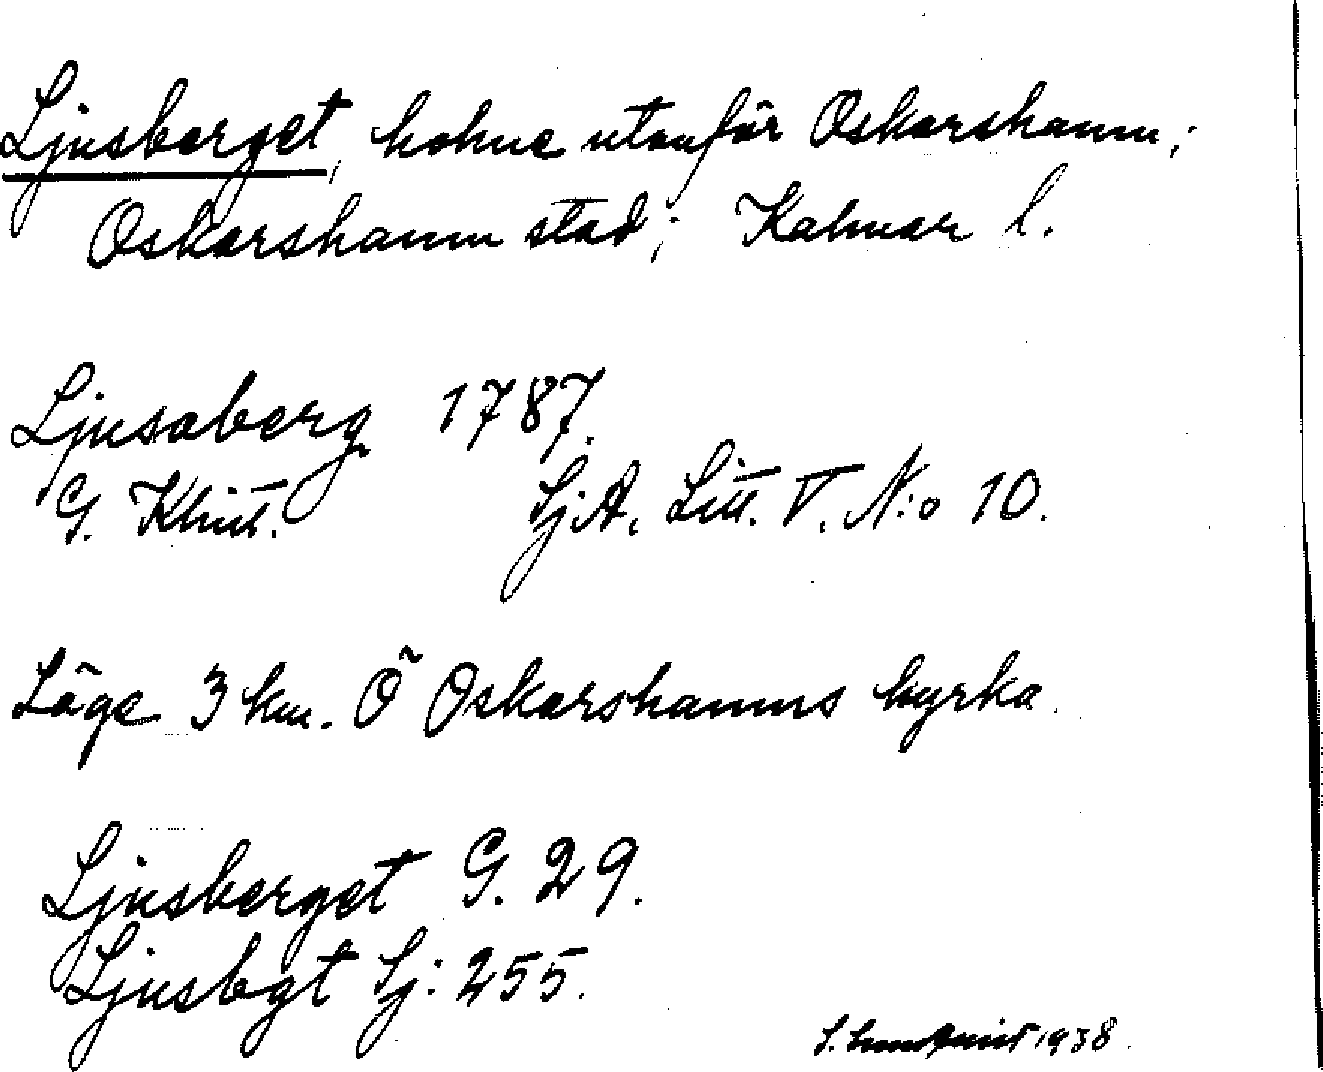 Ljusberget, holme utanför Oskarshamn;
Oskarshamn stad; Kalmar l.
Ljusaberg 1787.
G. Klint. SjA. Litt. V. N:o 10.
Läge 3 km. Ö Oskarshamns kyrka.
Ljusberget G. 29.
Ljusbgt Sj: 255.
S. Lundquist 1938.